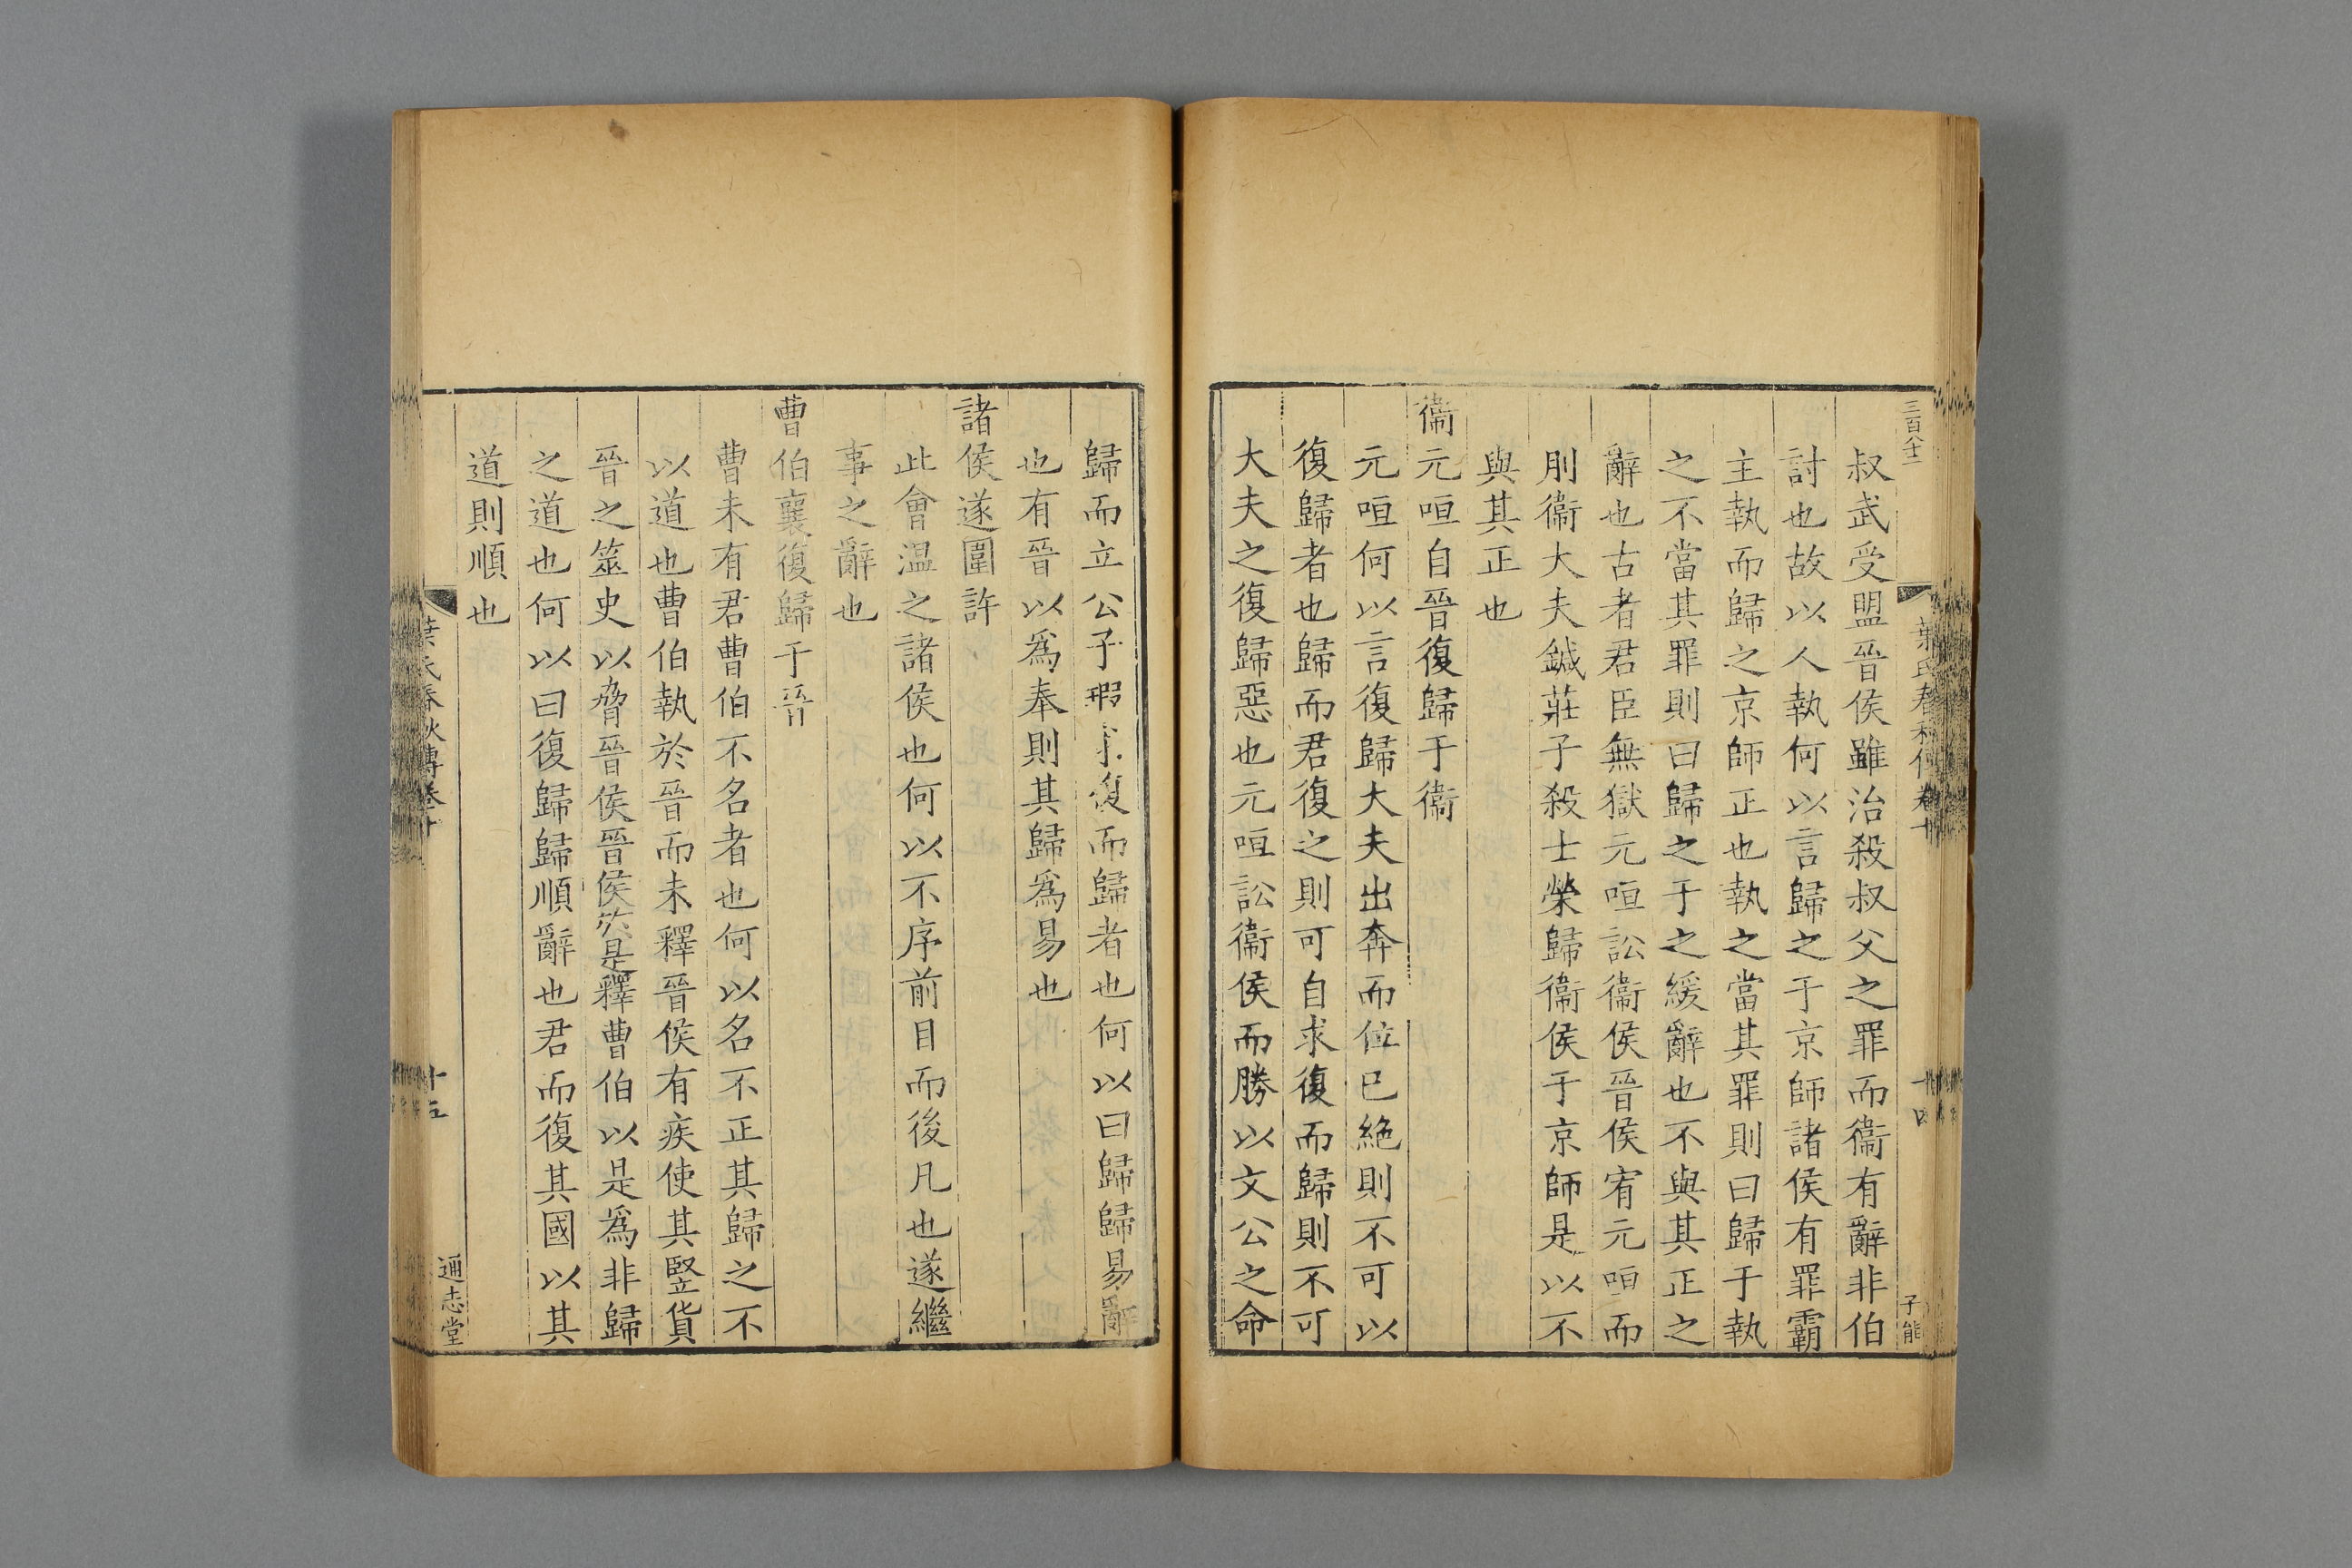 三百八十二
叔武受盟晉侯雖治殺叔父之罪而衞有辭非伯
討也故以人執何以言歸之于京師諸侯有罪霸
主執而歸之京師正也執之當其罪則曰歸于執
之不當其罪則曰歸之于之緩辭也不與其正之
辭也古者君臣無獄元咺訟衞侯晉侯宥元咺而
刖衞大夫鍼莊子殺士榮歸衞侯于京師是以不
與其正也
衞元咺自晉復歸于衞
元咺何以言復歸大夫出奔而位已絶則不可以
復歸者也歸而君復之則可自求復而歸則不可
大夫之復歸惡也元咺訟衞侯而勝以文公之命
葉氏春秋傳卷十
十四
子能
歸而立公子瑕求復而歸者也何以曰歸歸易辭
也有晉以爲奉則其歸爲易也
諸侯遂圍許
此會温之諸侯也何以不序前目而後凡也遂繼
事之辭也
曹伯襄復歸于晉
曹未有君曹伯不名者也何以名不正其歸之不
以道也曹伯執於晉而未釋晉侯有疾使其豎貨
晉之筮史以脅晉侯晉侯於是釋曹伯以是爲非歸
之道也何以曰復歸歸順辭也君而復其國以其
道則順也
葉氏春秋傳卷十
十五
通志堂